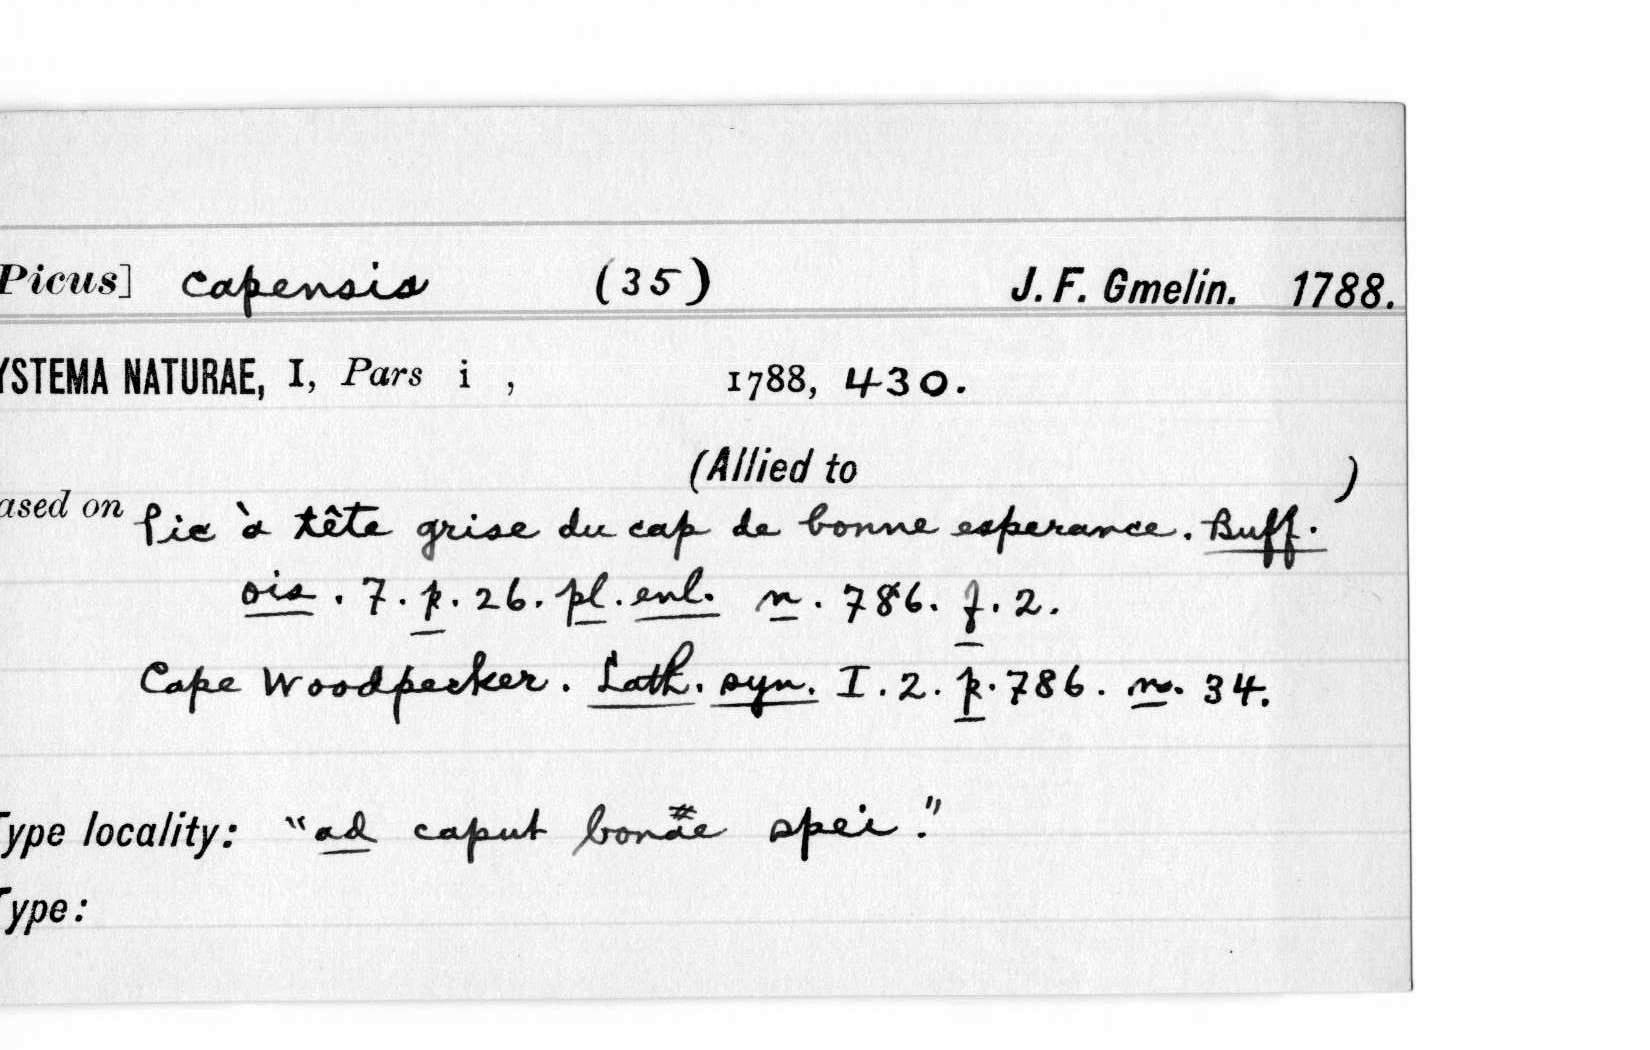 Picus] capensis (35) J. F. Gmelin. 1788.
YSTEMA NATURAE, I, Pars i , 1788, 430.
(Allied to )
ased on Pic à tête grise du cap de bonne esperance. Buff.
ois. 7. p. 26. pl. enl. n. 786. f. 2.
Cape Woodpecker. Lath. syn. I. 2. p. 786. n. 34.
Type locality: "ad caput bonae spei."
Type: